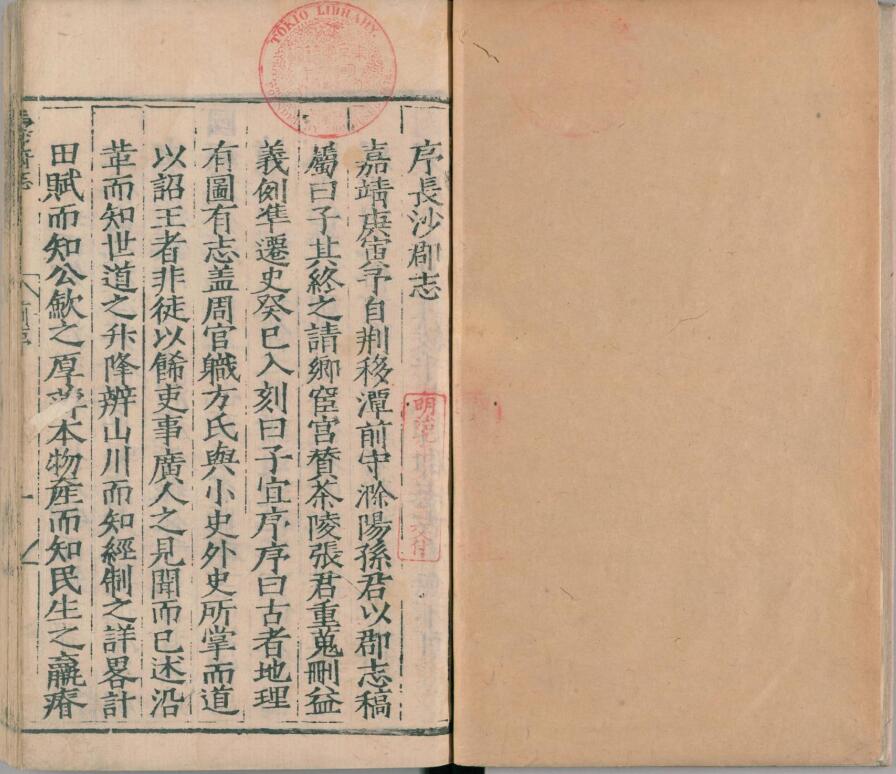 序長沙郡志
嘉靖庚寅予自荆移潭前守滁陽孫君以郡志稿
屬曰子其終之請鄉宦宫賛茶陵張君重蒐刪益
義例準遷史癸巳入刻曰子宜序序曰古者地理
有圖有志盖周官職方氏與小史外史所掌而道
以詔王者非徒以餙吏事廣人之見聞而已述沿
革而知世道之升降辨山川而知經制之詳畧計
田賦而知公歛之厚薄本物産而知民生之羸瘠
TOKIO LIBRARY
明治
交付